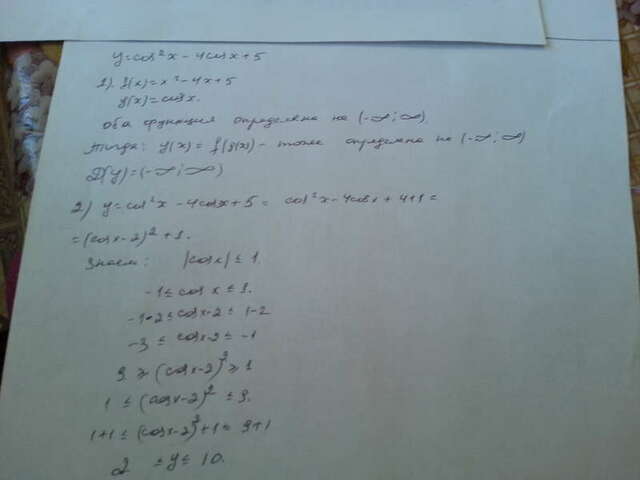 y=cos²x - 4cosx + 5
1). f(x) = x² - 4x + 5
g(x) = cosx.
оба функция определена на (-∞; ∞).
Тогда: y(x) = f(g(x)) - тоже определена на (-∞; ∞)
D(y) = (-∞; ∞)
2) y = cos²x - 4cosx + 5 = cos²x - 4cosx + 4 + 1 =
= (cosx - 2)² + 1.
Знаем: |cosx| ≤ 1.
-1 ≤ cos x ≤ 1.
-1-2 ≤ cosx-2 ≤ 1-2
-3 ≤ cosx-2 ≤ -1
9 ≥ (cosx-2)² ≥ 1
1 ≤ (cosx-2)² ≤ 9.
1+1 ≤ (cosx-2)²+1 ≤ 9+1
2 ≤ y ≤ 10.